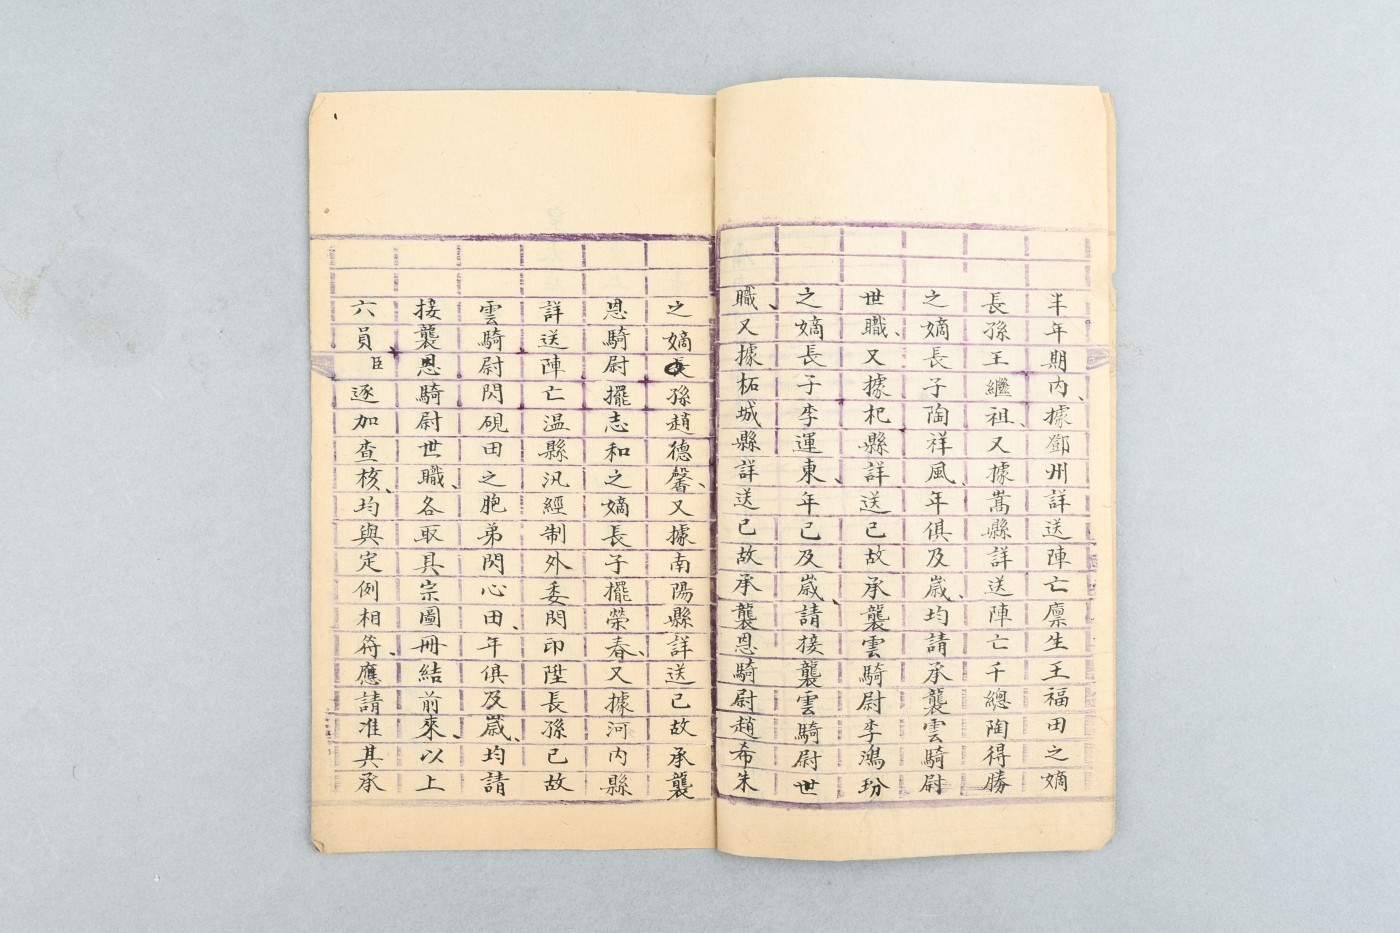 半年期內、據鄧州詳送陣亡廩生王福田之嫡
長孫王繼祖、又據嵩縣詳送陣亡千總陶得勝
之嫡長子陶祥風、年俱及嵗、均請承襲雲騎尉
世職、又據杞縣詳送已故承襲雲騎尉李鴻玢
之嫡長子李運東、年已及嵗、請接襲雲騎尉世
職、又據柘城縣詳送已故承襲恩騎尉趙希朱
之嫡長孫趙德馨、又據南陽縣詳送已故承襲
恩騎尉擺志和之嫡長子擺榮春、又據河內縣
詳送陣亡温縣汛經制外委閃印陞長孫已故
雲騎尉閃硯田之胞弟閃心田、年俱及嵗、均請
接襲恩騎尉世職、各取具宗圖冊結前來、以上
六員臣逐加查核、均與定例相符、應請准其承